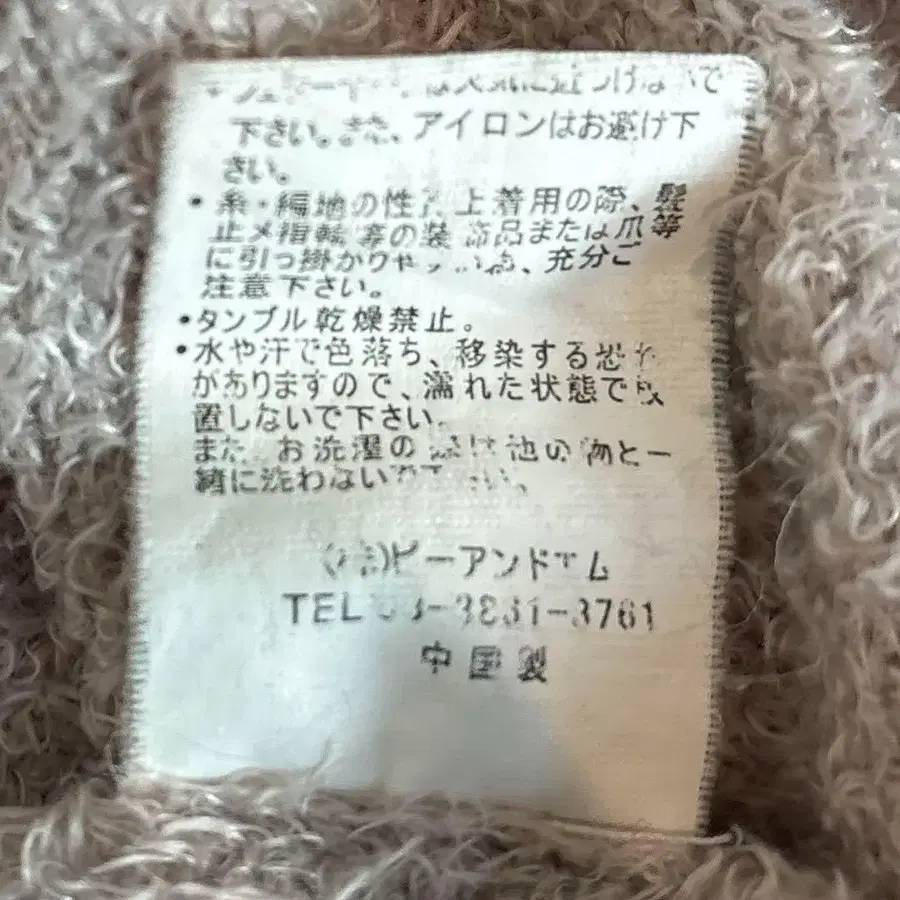 下さい。また、アイロンはお避け下
さい。
・糸・編地の性 上着用の際、髪
止メ指輪等の装飾品または爪等
に引っ掛かりや 、充分ご
注意下さい。
・タンブル乾燥禁止。
・水や汗で色落ち、移染する恐れ
がありますので、濡れた状態で放
置しないで下さい。
また、お洗濯の 他の物と一
緒に洗わない
(株)ピーアンドエム
TEL
中国製